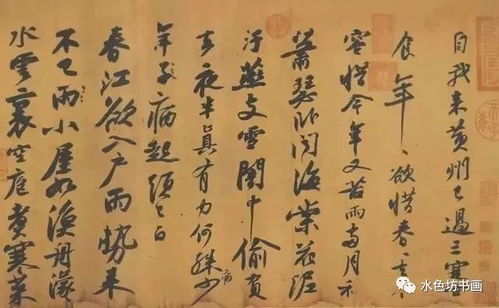 自我来黄州已過三寒
食年〻欲惜春〻去不
容惜今年又苦雨兩月秋
蕭瑟卧聞海棠花泥
汙燕支雪闇中偷負
去夜半真有力何殊病少
年子病起頭已白
春江欲入户雨勢来
不已雨小屋如漁舟濛〻
水雲裏空庖煮寒菜
水色坊书画